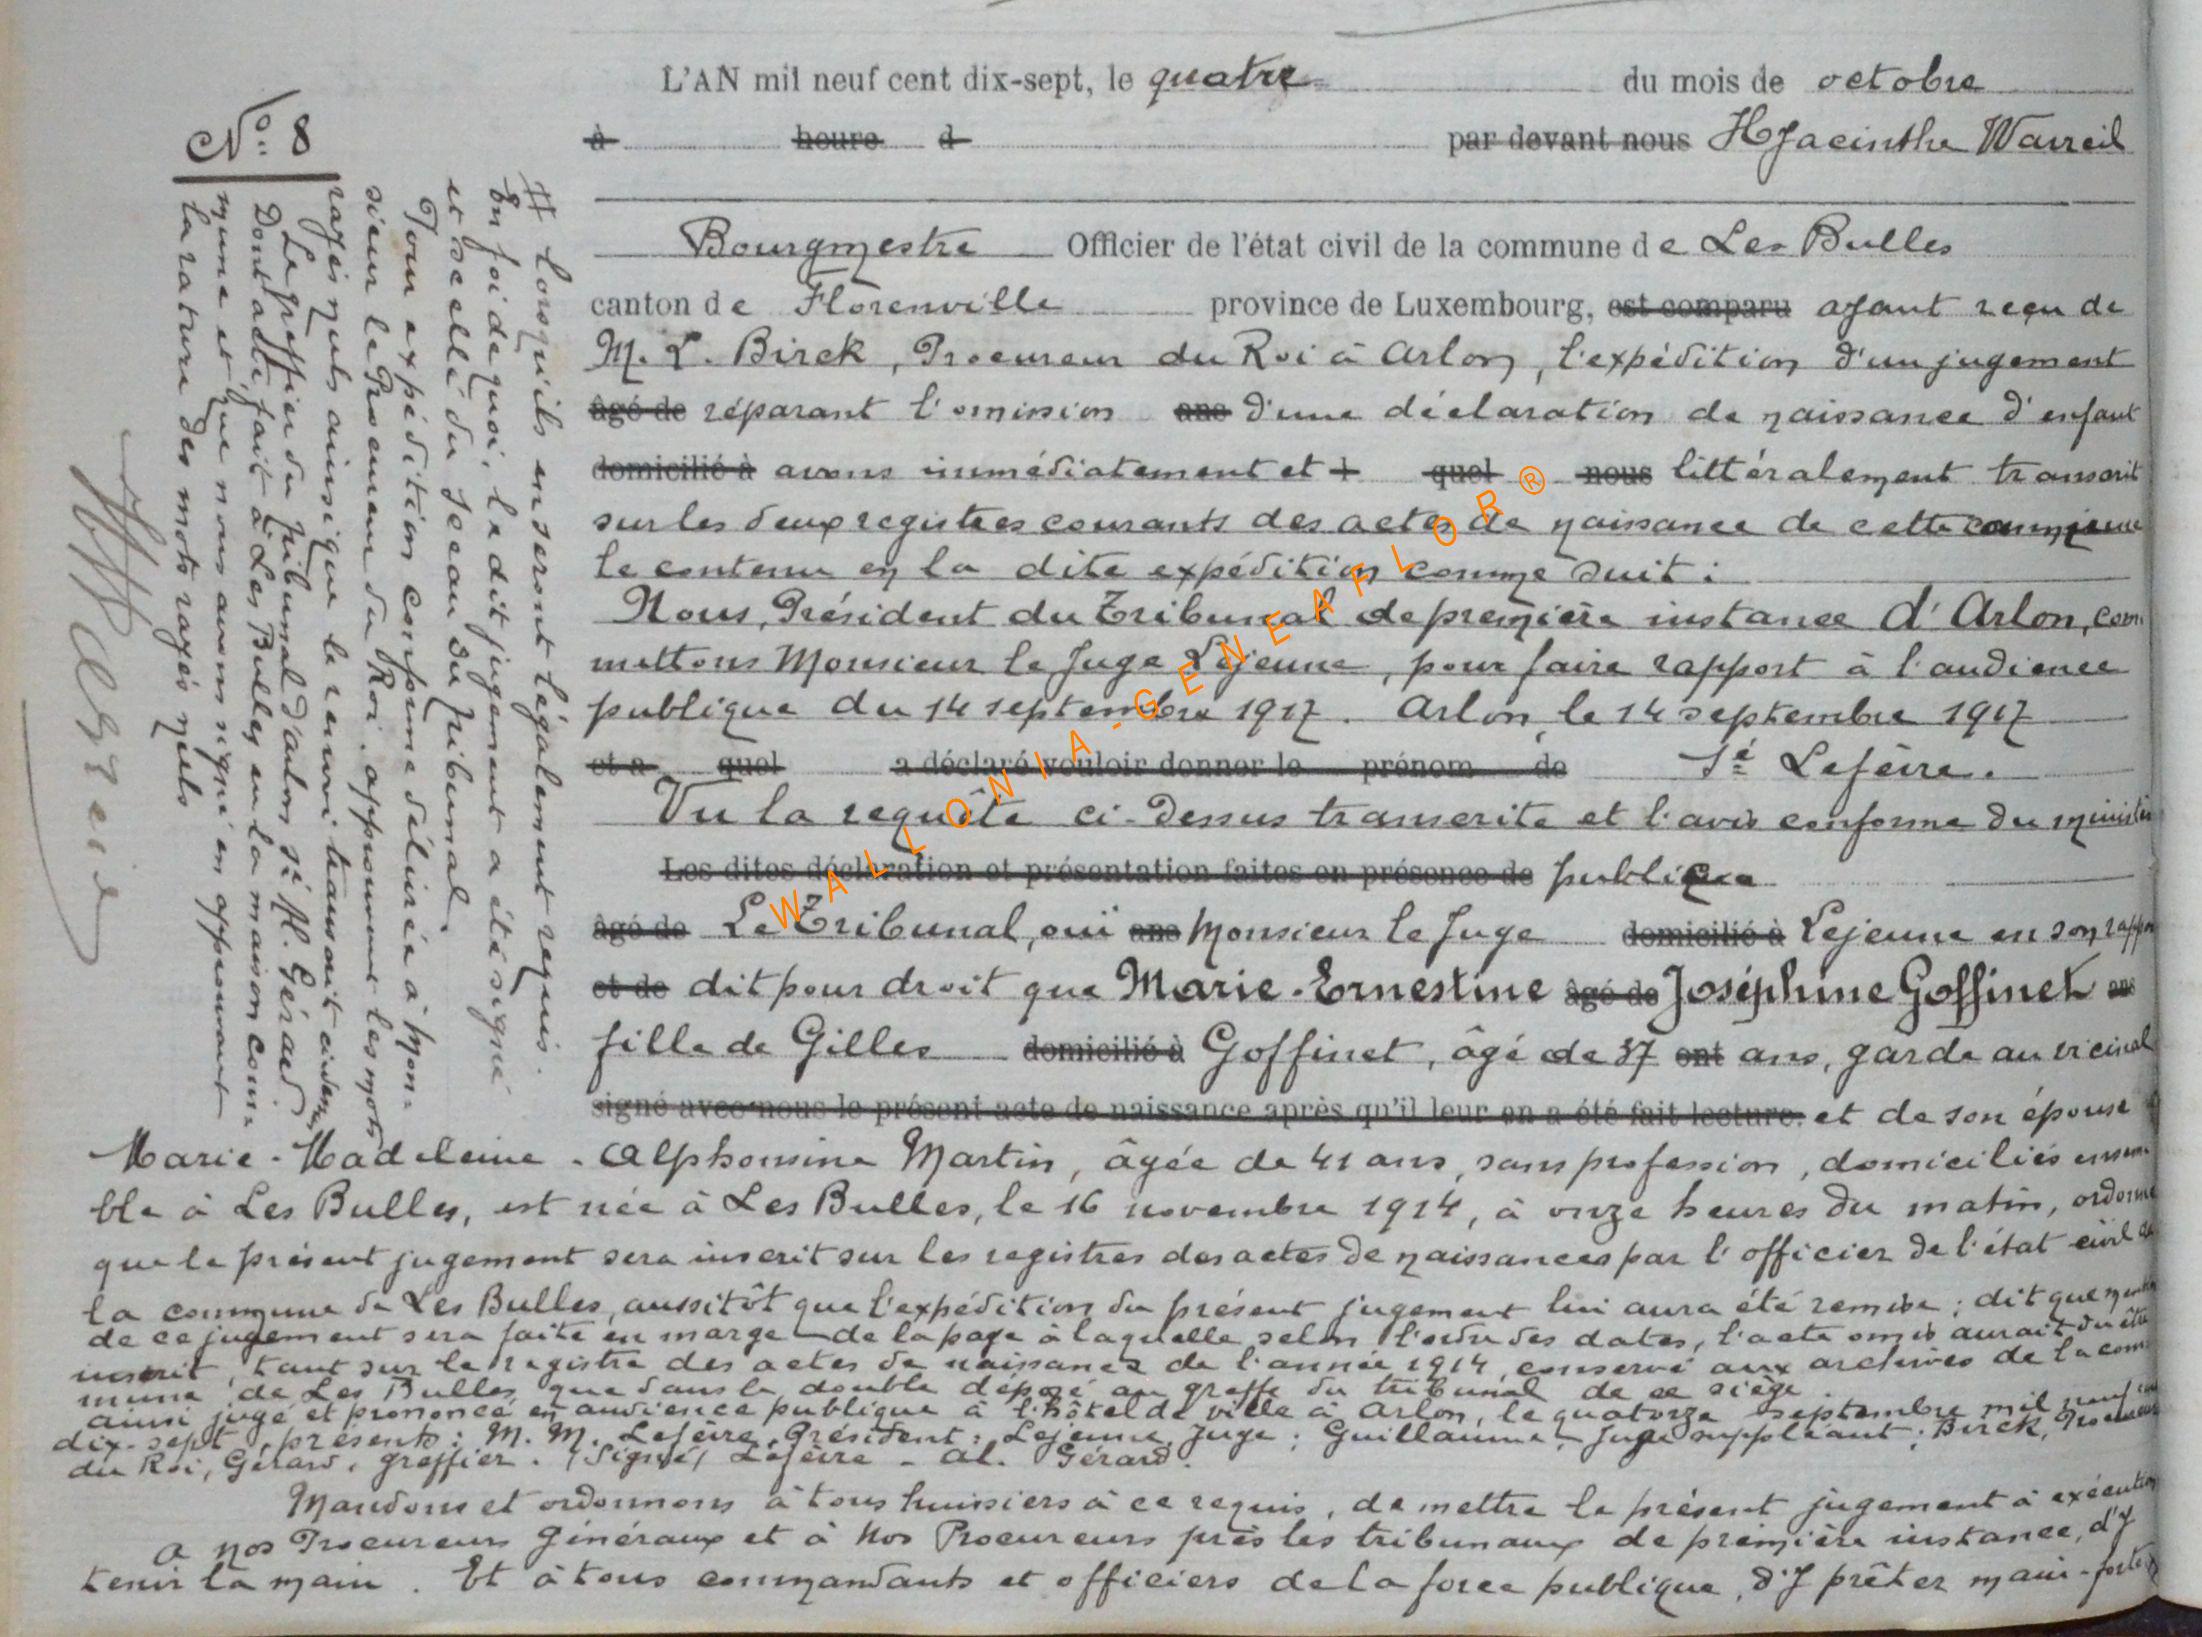 L'AN mil neuf cent dix-sept, le quatre du mois de octobre
N° 8
à heure d par devant nous Hyacinthe Warreil
Bourgmestre Officier de l'état civil de la commune de Les Bulles
canton de Florenville province de Luxembourg, est comparu ayant reçu de
M. L. Birck, Procureur du Roi à Arlon, l'expédition d'un jugement
âgé de réparant l'omission ans d'une déclaration de naissance d'enfant
domicilié à avons immédiatement et l quel nous littéralement transcrit
sur les deux registres courants des actes de naissance de cette commune
le contenu en la dite expédition comme suit :
Nous, Président du Tribunal de première instance d'Arlon, com
mettons Monsieur le Juge Lejeune, pour faire rapport à l'audience
publique du 14 septembre 1917. Arlon, le 14 septembre 1917
et a quel a déclaré vouloir donner le prénom de Sé Lefèvre.
Vu la requête ci-dessus transcrite et l'avis conforme du ministère
Les dites déclaration et présentation faites en présence de publique
âgé de Le Tribunal, ouï ans Monsieur le Juge domicilié à Lejeune en son rapport
et de dit pour droit que Marie-Ernestine âgé de Joséphine Goffinet ans
fille de Gilles domicilié à Goffinet, âgé de 37 ont ans, garde au vicinal
signé avec nous le présent acte de naissance après qu'il leur en a été fait lecture. et de son épouse
Marie-Madeleine-Alphonsine Martin, âgée de 41 ans, sans profession, domiciliés ensem
ble à Les Bulles, est née à Les Bulles, le 16 novembre 1914, à onze heures du matin, ordonne
que le présent jugement sera inscrit sur les registres des actes de naissances par l'officier de l'état civil de
la commune de Les Bulles, aussitôt que l'expédition du présent jugement lui aura été remise ; dit que mention
de ce jugement sera faite en marge de la page à laquelle selon l'ordre des dates, l'acte omis aurait dû être
inscrit, tant sur le registre des actes de naissance de l'année 1914, conservé aux archives de la com
mune de Les Bulles que dans le double déposé au greffe du tribunal de ce siège.
ainsi jugé et prononcé en audience publique à l'hôtel de ville à Arlon, le quatorze septembre mil neuf cent
dix-sept, présents : M. M. Lefèvre, Président ; Lejeune, Juge ; Guillaume, Juge suppléant ; Birck, Procureur
du Roi, Gérard, greffier. (Signé) Lefèvre - Al. Gérard.
Mandons et ordonnons à tous huissiers à ce requis, de mettre le présent jugement à exécution
A nos Procureurs Généraux et à Nos Procureurs près les tribunaux de première instance, d'y
tenir la main. Et à tous commandants et officiers de la force publique, d'y prêter main-forte
# lorsqu'ils en seront légalement requis.
En foi de quoi, le dit jugement a été signé
et scellé du sceau du Tribunal.
Pour expédition conforme délivrée à Mon-
sieur le Procureur du Roi. approuvant les mots
rayés nuls ainsi que le renvoi transcrit
Le greffier du Tribunal d'Arlon sé Al. Gérard
Dont acte, fait à Les Bulles en la maison com-
mune et que nous avons signé en approuvant
la rature des mots rayés nuls
HWarreil
WALLONIA-GENEAFLOR®